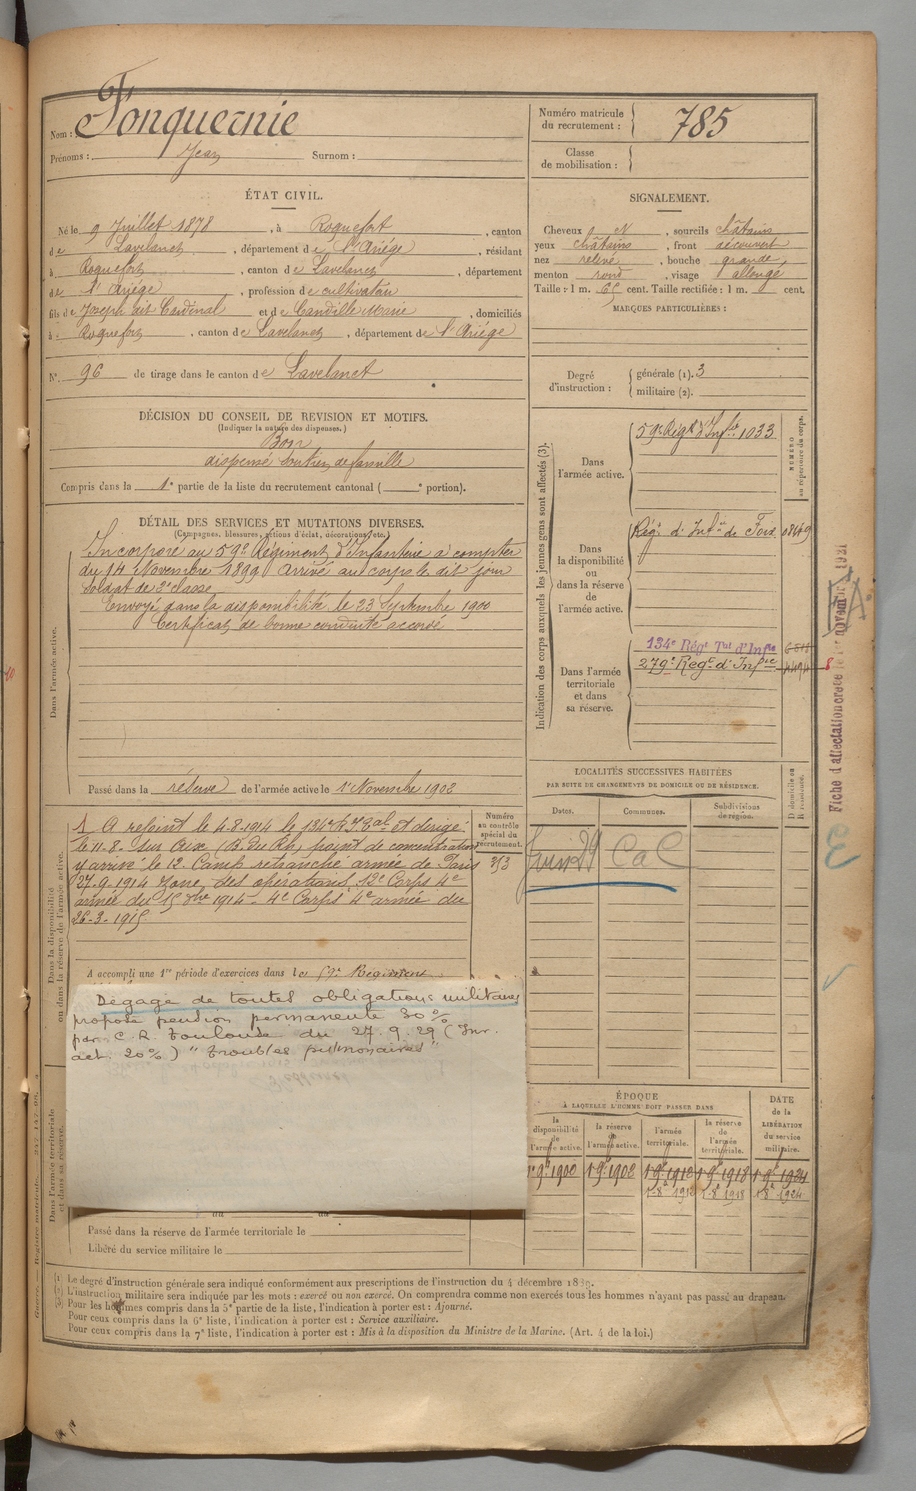 Nom : Fonquernie
Prénoms : Jean Surnom :
Numéro matricule du recrutement : 785
Classe de mobilisation :
ÉTAT CIVIL.
Né le 9 Juillet 1878, à Roquefort, canton
de Lavelanet, département de l'Ariége, résidant
à Roquefort, canton de Lavelanet, département
de l'Ariége, profession de cultivateur
fils de Joseph dit Cardinal et de Candille Marie, domiciliés
à Roquefort, canton de Lavelanet, département de l'Ariége
N° 96 de tirage dans le canton de Lavelanet
SIGNALEMENT.
Cheveux N, sourcils châtains
yeux châtains, front découvert
nez relevé, bouche grande,
menton rond, visage allongé
Taille : 1 m. 65 cent. Taille rectifiée : 1 m. cent.
MARQUES PARTICULIÈRES :
Degré d'instruction : générale (1). 3
militaire (2).
DÉCISION DU CONSEIL DE REVISION ET MOTIFS.
(Indiquer la nature des dispenses.)
Bon
dispensé soutien de famille
Compris dans la 1e partie de la liste du recrutement cantonal ( e portion).
DÉTAIL DES SERVICES ET MUTATIONS DIVERSES.
(Campagnes, blessures, actions d'éclat, décorations, etc.)
Dans l'armée active.
Incorporé au 59e Régiment d'Infanterie à compter
du 14 Novembre 1899 Arrivé au corps le dit jour
Soldat de 2e classe
Envoyé dans la disponibilité le 23 Septembre 1900
Certificat de bonne conduite accordé
Passé dans la réserve de l'armée active le 1er Novembre 1902
Indication des corps auxquels les jeunes gens sont affectés (3).
NUMÉRO au répertoire du corps.
Dans l'armée active.
59e Régt d'Infie 1033
Dans la disponibilité ou dans la réserve de l'armée active.
Régt d'Infie de Foix
Dans l'armée territoriale et dans sa réserve.
134e Régt Tal d'Infie
279e Régt d'Infie
Fiche d'affectation créée le 1er novembre 1921
LOCALITÉS SUCCESSIVES HABITÉES
PAR SUITE DE CHANGEMENTS DE DOMICILE OU DE RÉSIDENCE.
Dates. Communes. Subdivisions de région. D. domicile ou R. résidence.
Juin 29 CaC
Dans la disponibilité ou dans la réserve de l'armée active.
Numéro au contrôle spécial du recrutement.
353
A rejoint le 4-8-1914 le 134e R.I.Tal et dirigé
le 11-8- sur Aix, / B. du Rh, point de concentration
y arrivé le 12. Camp retranché armée de Paris
27-9-1914 Zone des opérations, 12e Corps 4e
armée du 15 8bre 1914- 4e Corps 4e armée du
26-3-1915
A accompli une 1re période d'exercices dans le 59e Régiment
Dégagé de toutes obligations militaires
proposé pension permanente 30%
par C.R. Toulouse du 27.9.29 (Inv.
act. 20%) "troubles pulmonaires"
Dans l'armée territoriale et dans sa réserve.
du au
Passé dans la réserve de l'armée territoriale le
Libéré du service militaire le
ÉPOQUE
À LAQUELLE L'HOMME DOIT PASSER DANS
DATE de la LIBÉRATION du service militaire.
la disponibilité de l'armée active.
la réserve de l'armée active.
l'armée territoriale.
la réserve de l'armée territoriale.
1 9e 1900 1 9e 1902 1 9e 1912 1 9e 1918 1 9e 1924
1-8e 1912 1-8e 1918 1-8e 1924
(1) Le degré d'instruction générale sera indiqué conformément aux prescriptions de l'instruction du 4 décembre 1889.
(2) L'instruction militaire sera indiquée par les mots : exercé ou non exercé. On comprendra comme non exercés tous les hommes n'ayant pas passé au drapeau.
(3) Pour les hommes compris dans la 5e partie de la liste, l'indication à porter est : Ajourné.
Pour ceux compris dans la 6e liste, l'indication à porter est : Service auxiliaire.
Pour ceux compris dans la 7e liste, l'indication à porter est : Mis à la disposition du Ministre de la Marine. (Art. 4 de la loi.)